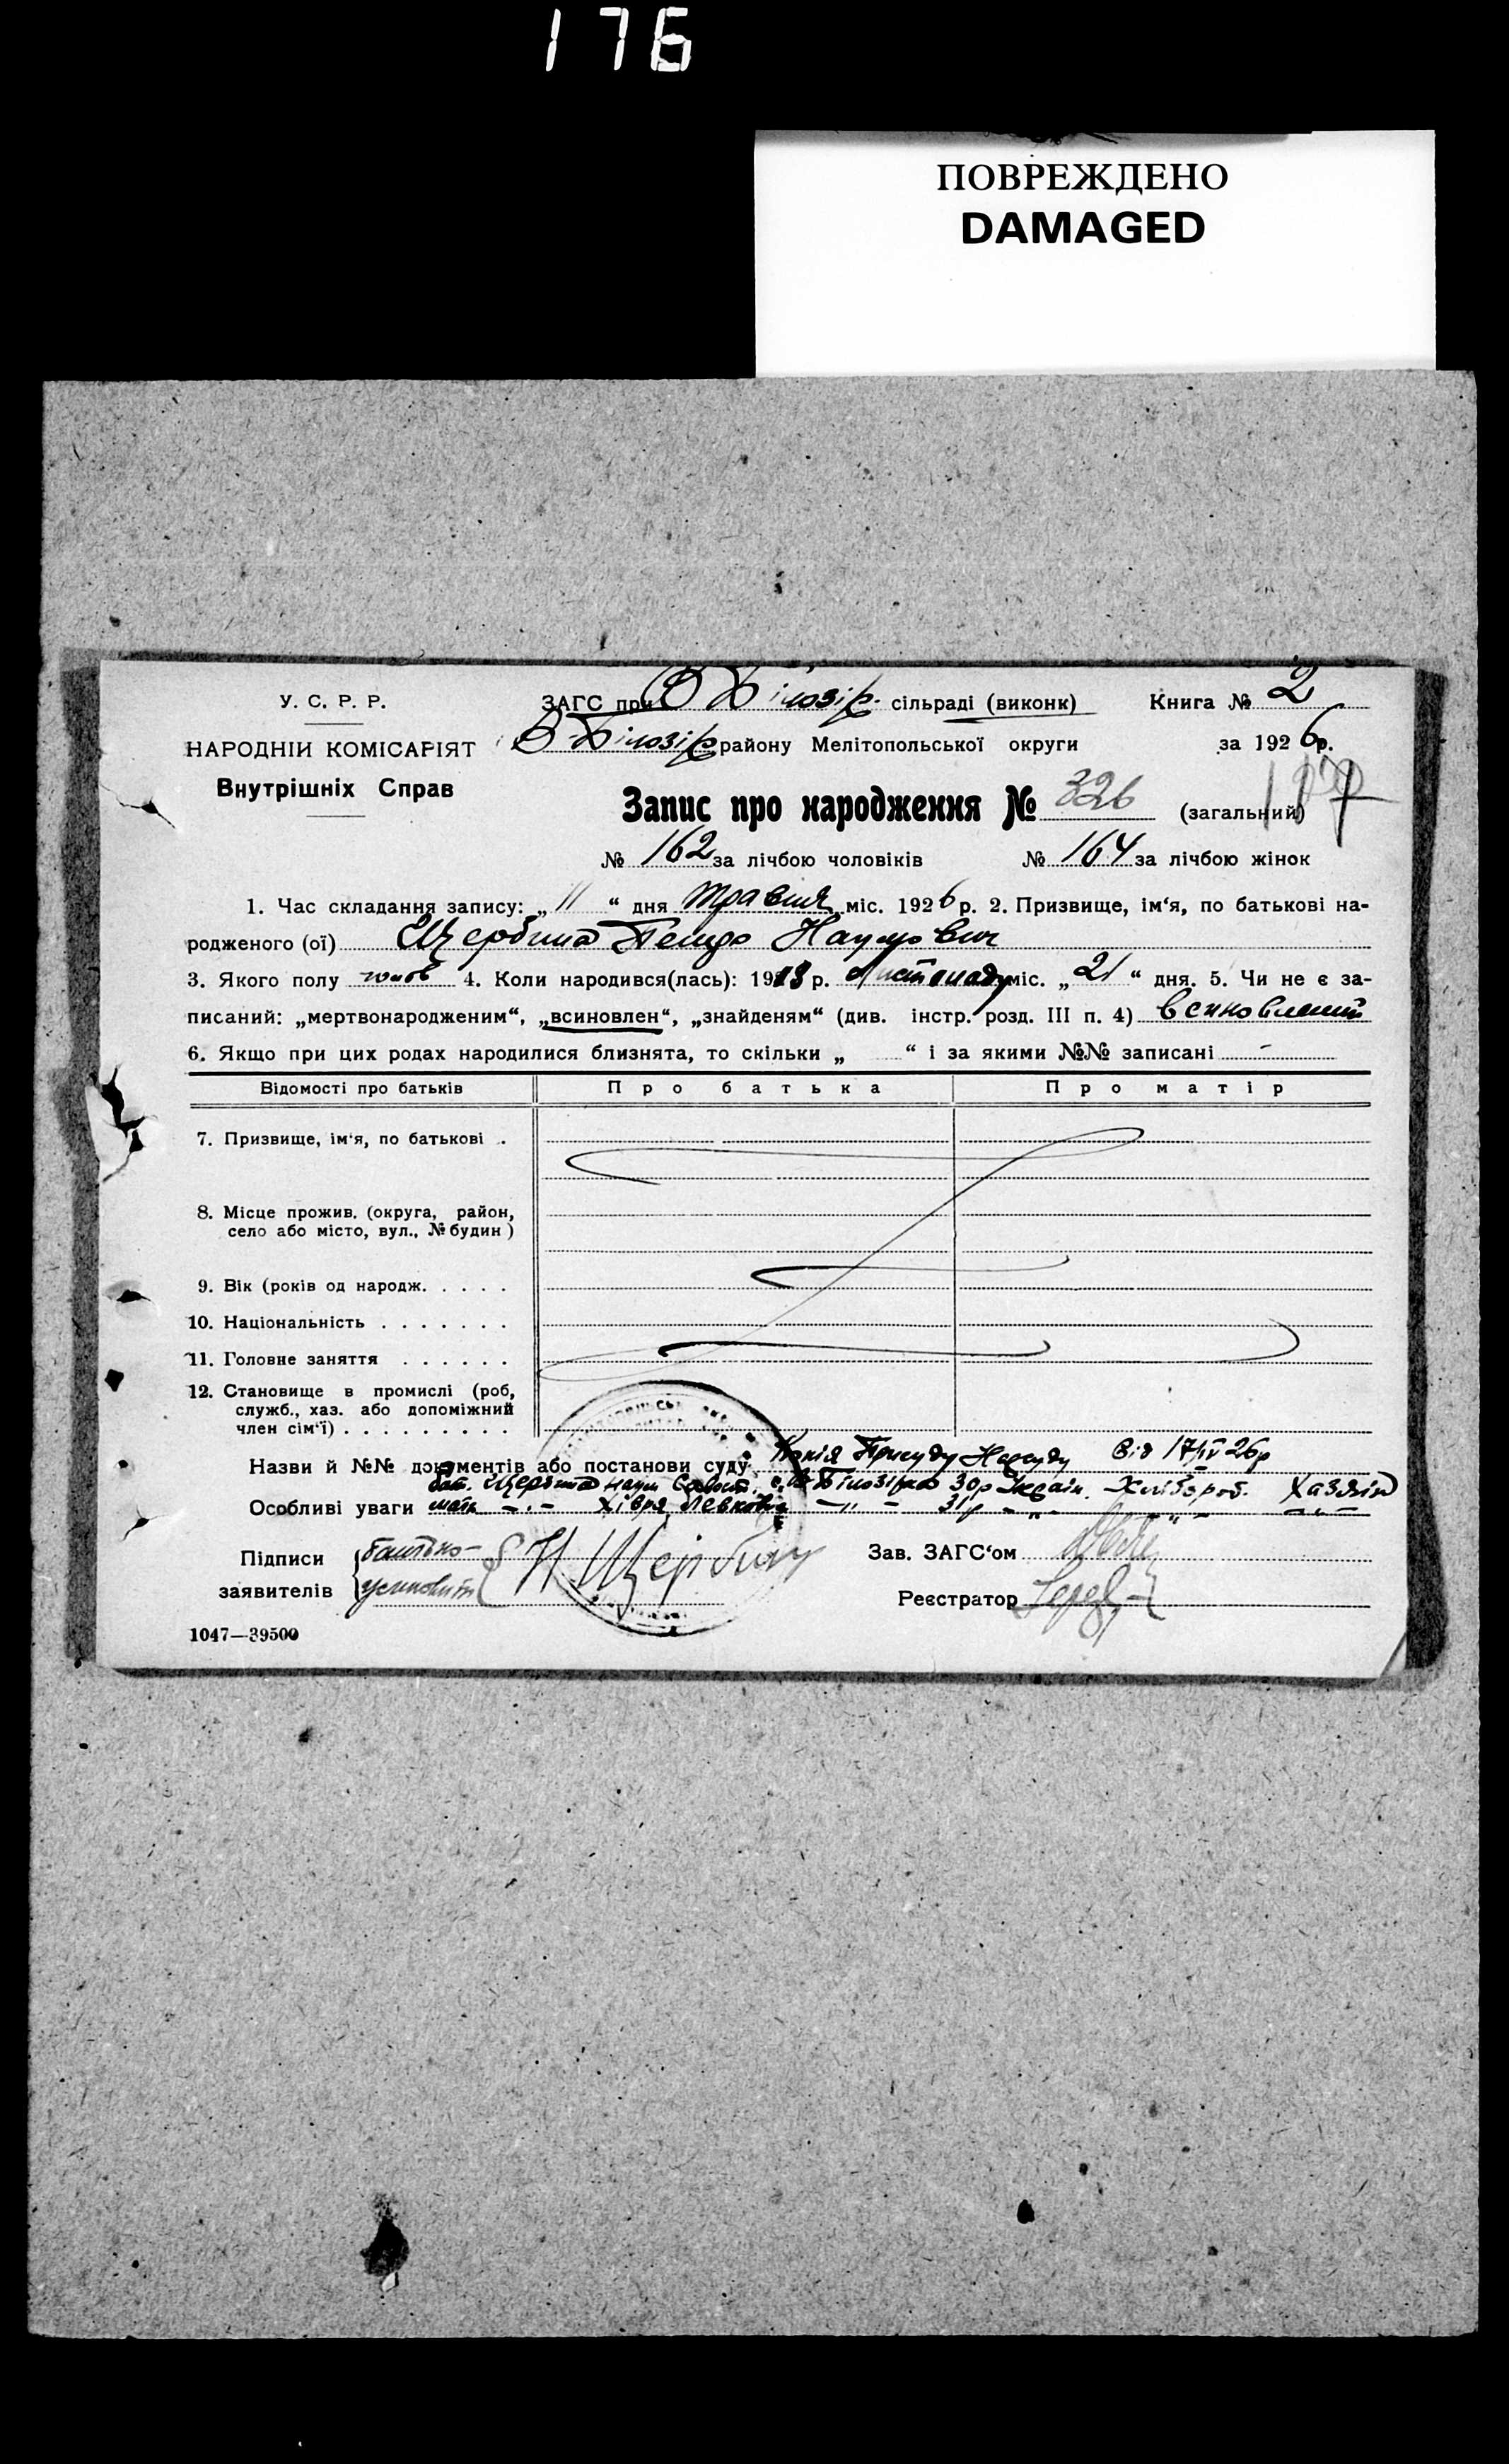 176
ПОВРЕЖДЕНО
DAMAGED
У. С. Р. Р.
НАРОДНІЙ КОМІСАРІЯТ
Внутрішніх Справ
ЗАГС при В Білозір. сільраді (виконк) Книга № 2
В-Білозір району Мелітопольської округи за 1926 р.
Запис про народження № 326 (загальний)
№ 162 за лічбою чоловіків № 164 за лічбою жінок
1. Час складання запису: „ 11 “ дня травня міс. 1926 р. 2. Призвище, ім‘я, по батькові на-
родженого (ої) Щербина Наумович
3. Якого полу чолов 4. Коли народився(лась): 19 р. Листопаду міс. „ 21 “ дня. 5. Чи не є за-
писаний: „мертвонародженим“, „всиновлен“, „знайденям“ (див. інстр. розд. III п. 4) всиновлений
6. Якщо при цих родах народилися близнята, то скільки „ “ і за якими №№ записані -
Відомості про батьків Про батька Про матір
7. Призвище, ім‘я, по батькові .
8. Місце прожив. (округа, район,
село або місто, вул., № будин )
9. Вік (років од народж. . . . .
10. Національність . . . . . . .
11. Головне заняття . . . . . .
12. Становище в промислі (роб,
служб., хаз. або допоміжний
член сім‘ї) . . . . . . . . .
Назви й №№ документів або постанови суду Копія Присуду Нарсуду від 17/IV 26р
бат. Щербина Наум с. В Білозірка 30р Україн. Хлібороб. Хазяїн
Особливі уваги мати -„- Хівря Левковна -„- 31р -„- -„- -„-
Підписи
заявителів
батько-
усиновит
Н Щербину
Зав. ЗАГС‘ом
Реєстратор
1047—39500